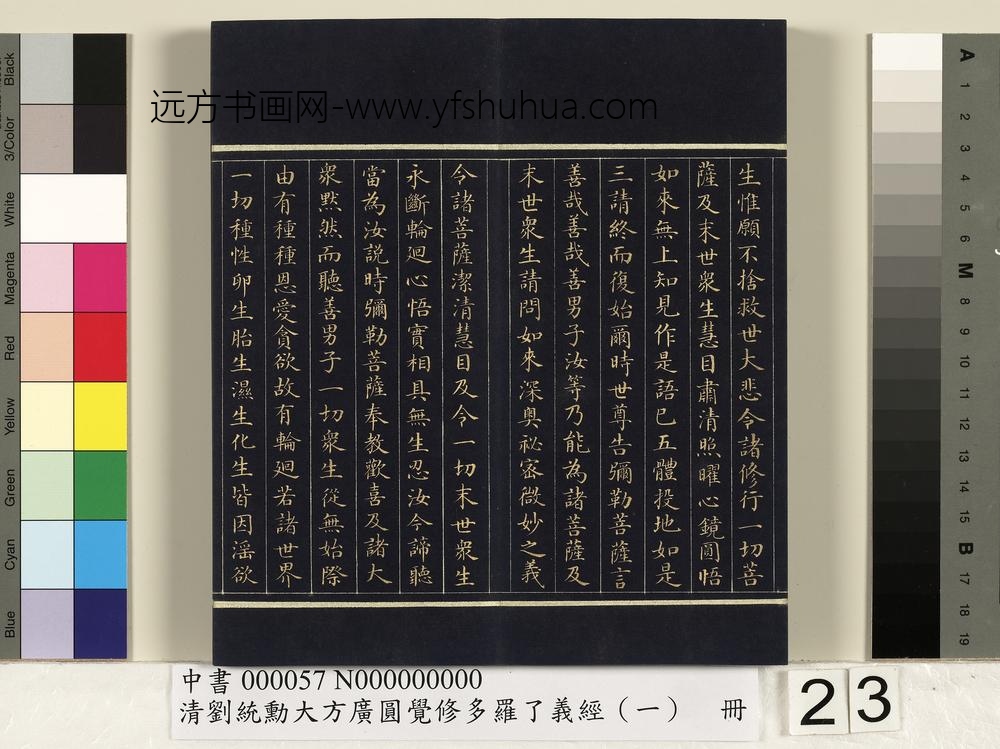 远方书画网-www.yfshuhua.com
生惟願不捨救世大悲令諸修行一切菩
薩及末世衆生慧目肅清照曜心鏡圓悟
如來無上知見作是語已五體投地如是
三請終而復始爾時世尊告彌勒菩薩言
善哉善哉善男子汝等乃能為諸菩薩及
末世衆生請問如來深奧祕密微妙之義
令諸菩薩潔清慧目及令一切末世衆生
永斷輪廻心悟實相具無生忍汝今諦聽
當為汝説時彌勒菩薩奉教歡喜及諸大
衆默然而聽善男子一切衆生從無始際
由有種種恩愛貪欲故有輪廻若諸世界
一切種性卵生胎生濕生化生皆因滛欲
中書 000057 N000000000
清劉統勳大方廣圓覺修多羅了義經（一） 冊
23
Black
3/Color
White
Magenta
Red
Yellow
Green
Cyan
Blue
A
1
2
3
4
5
6
M
8
9
10
11
12
13
14
15
B
17
18
19